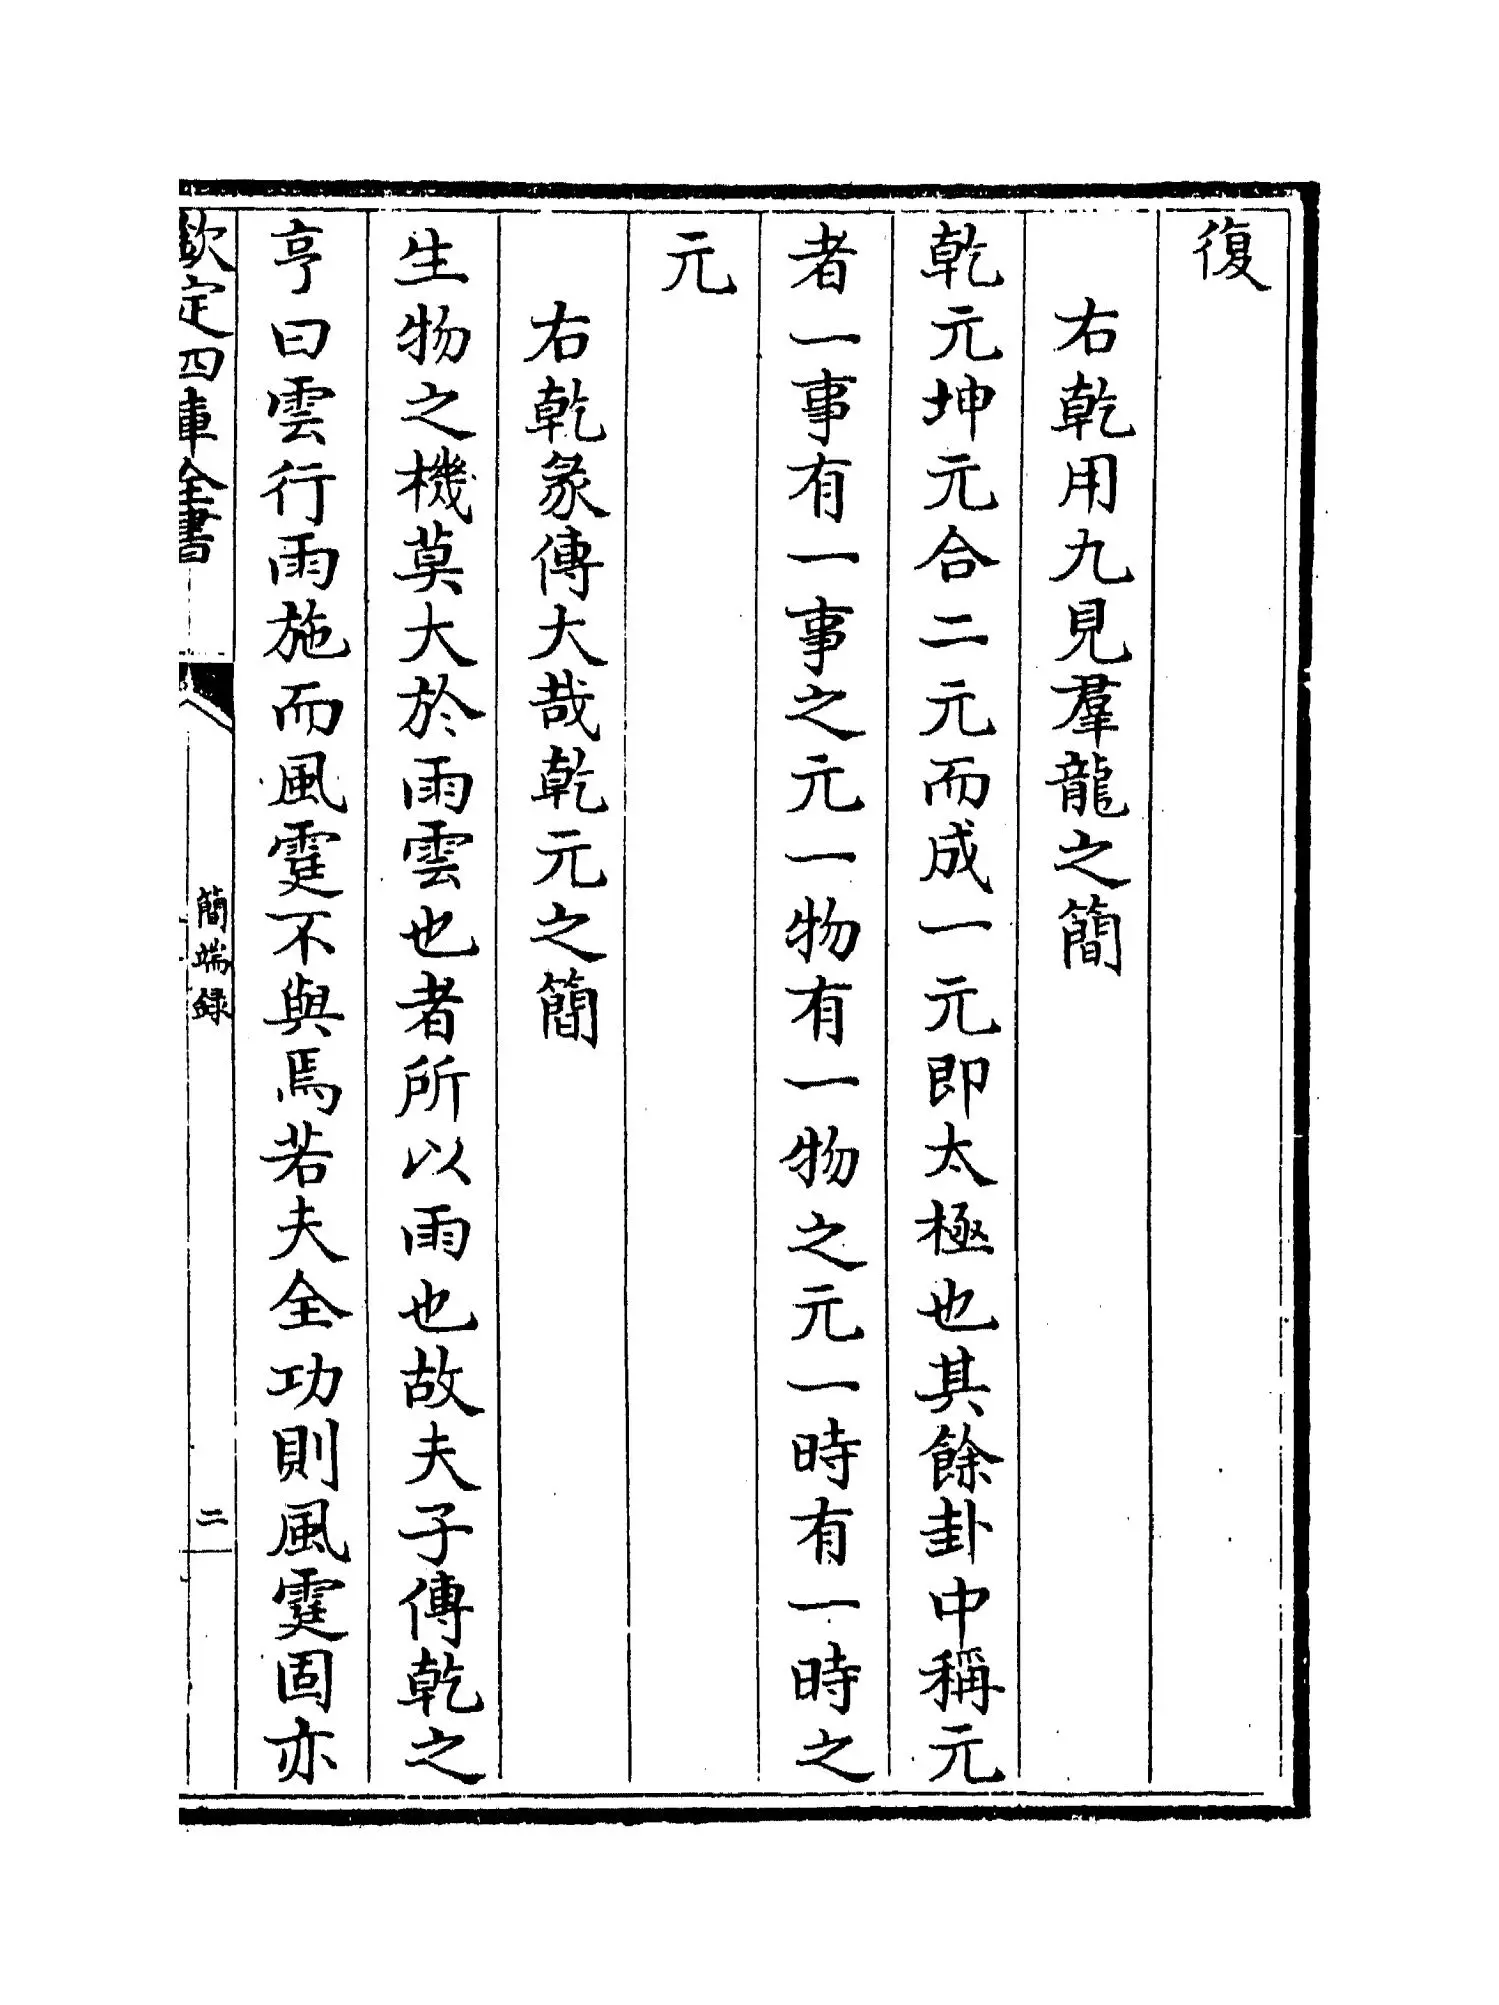 復
右乾用九見羣龍之簡
乾元坤元合二元而成一元即太極也其餘卦中稱元
者一事有一事之元一物有一物之元一時有一時之
元
右乾彖傳大哉乾元之簡
生物之機莫大於雨雲也者所以雨也故夫子傳乾之
亨曰雲行雨施而風霆不與焉若夫全功則風霆固亦
欽定四庫全書
簡端録
二